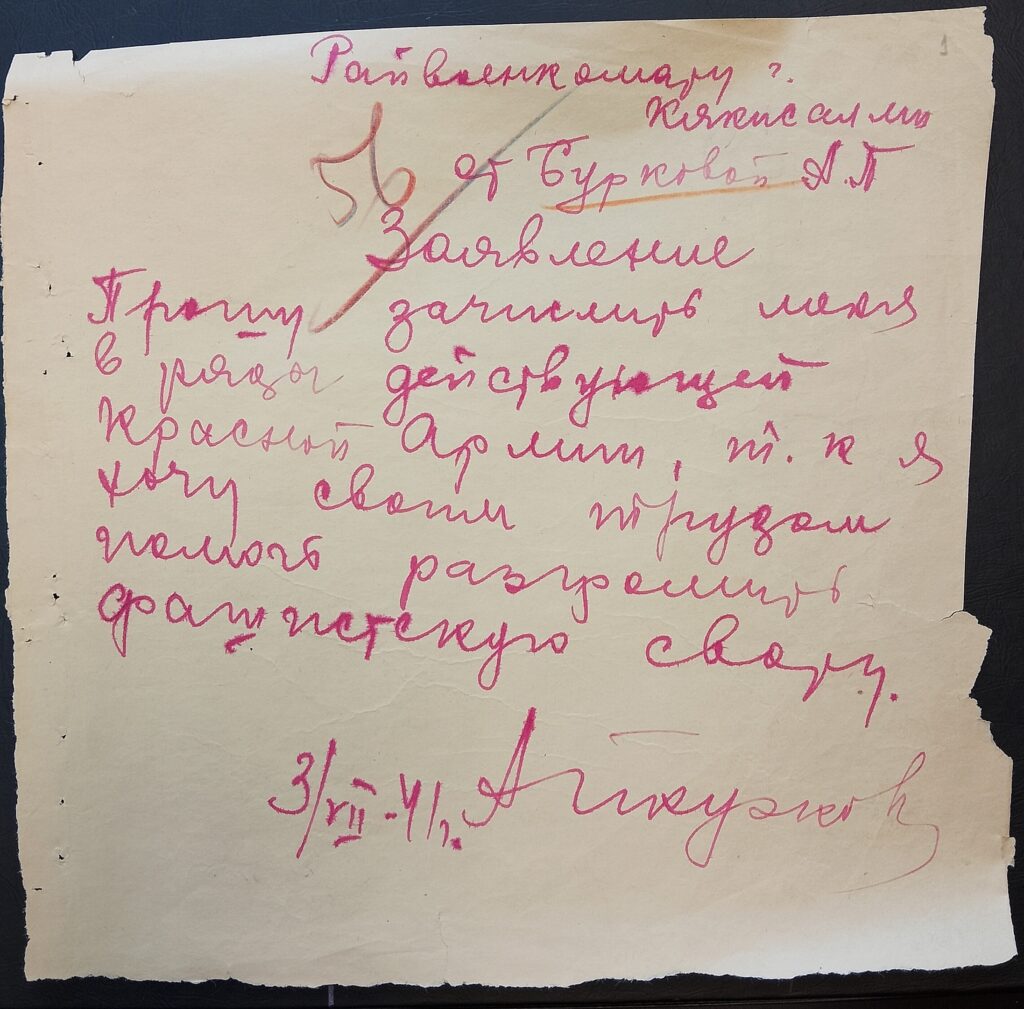 1
Райвоенкомату г.
Кякисалми
56
от Бурковой А.П
Заявление
Прошу зачислить меня
в ряды действующей
Красной Армии, т. к я
хочу своим трудом
помочь разгромить
фашистскую свору.
3/VII-41г.